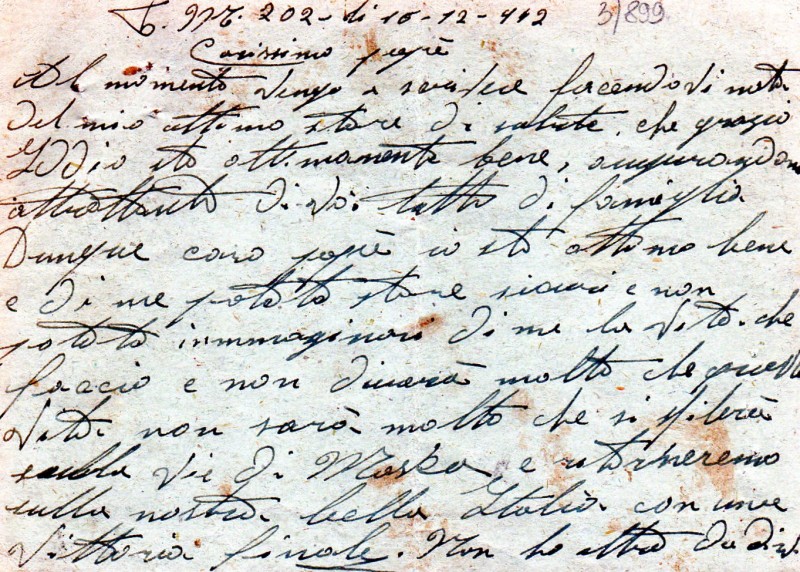 P. M. 202 - di 15-12-942 3/899
Carissimo papà
Al momento vengo a scrivere facendovi noto
del mio attimo stare di salute, che grazio
Iddio sto ottimamente bene, augurandone
altrettanto di voi tutto di famiglia
Dunque caro papà io sto ottimo bene
e di me pototo stare sicuri e non
pototo immmaginari di me la vita che
faccio e non durerà molto che questa
vita non sarà molto che si filerà
sulla vie di Moska e ritorneremo
sulla nostra bella Italia con una
Vittoria finale. Non ho altro da dirvi